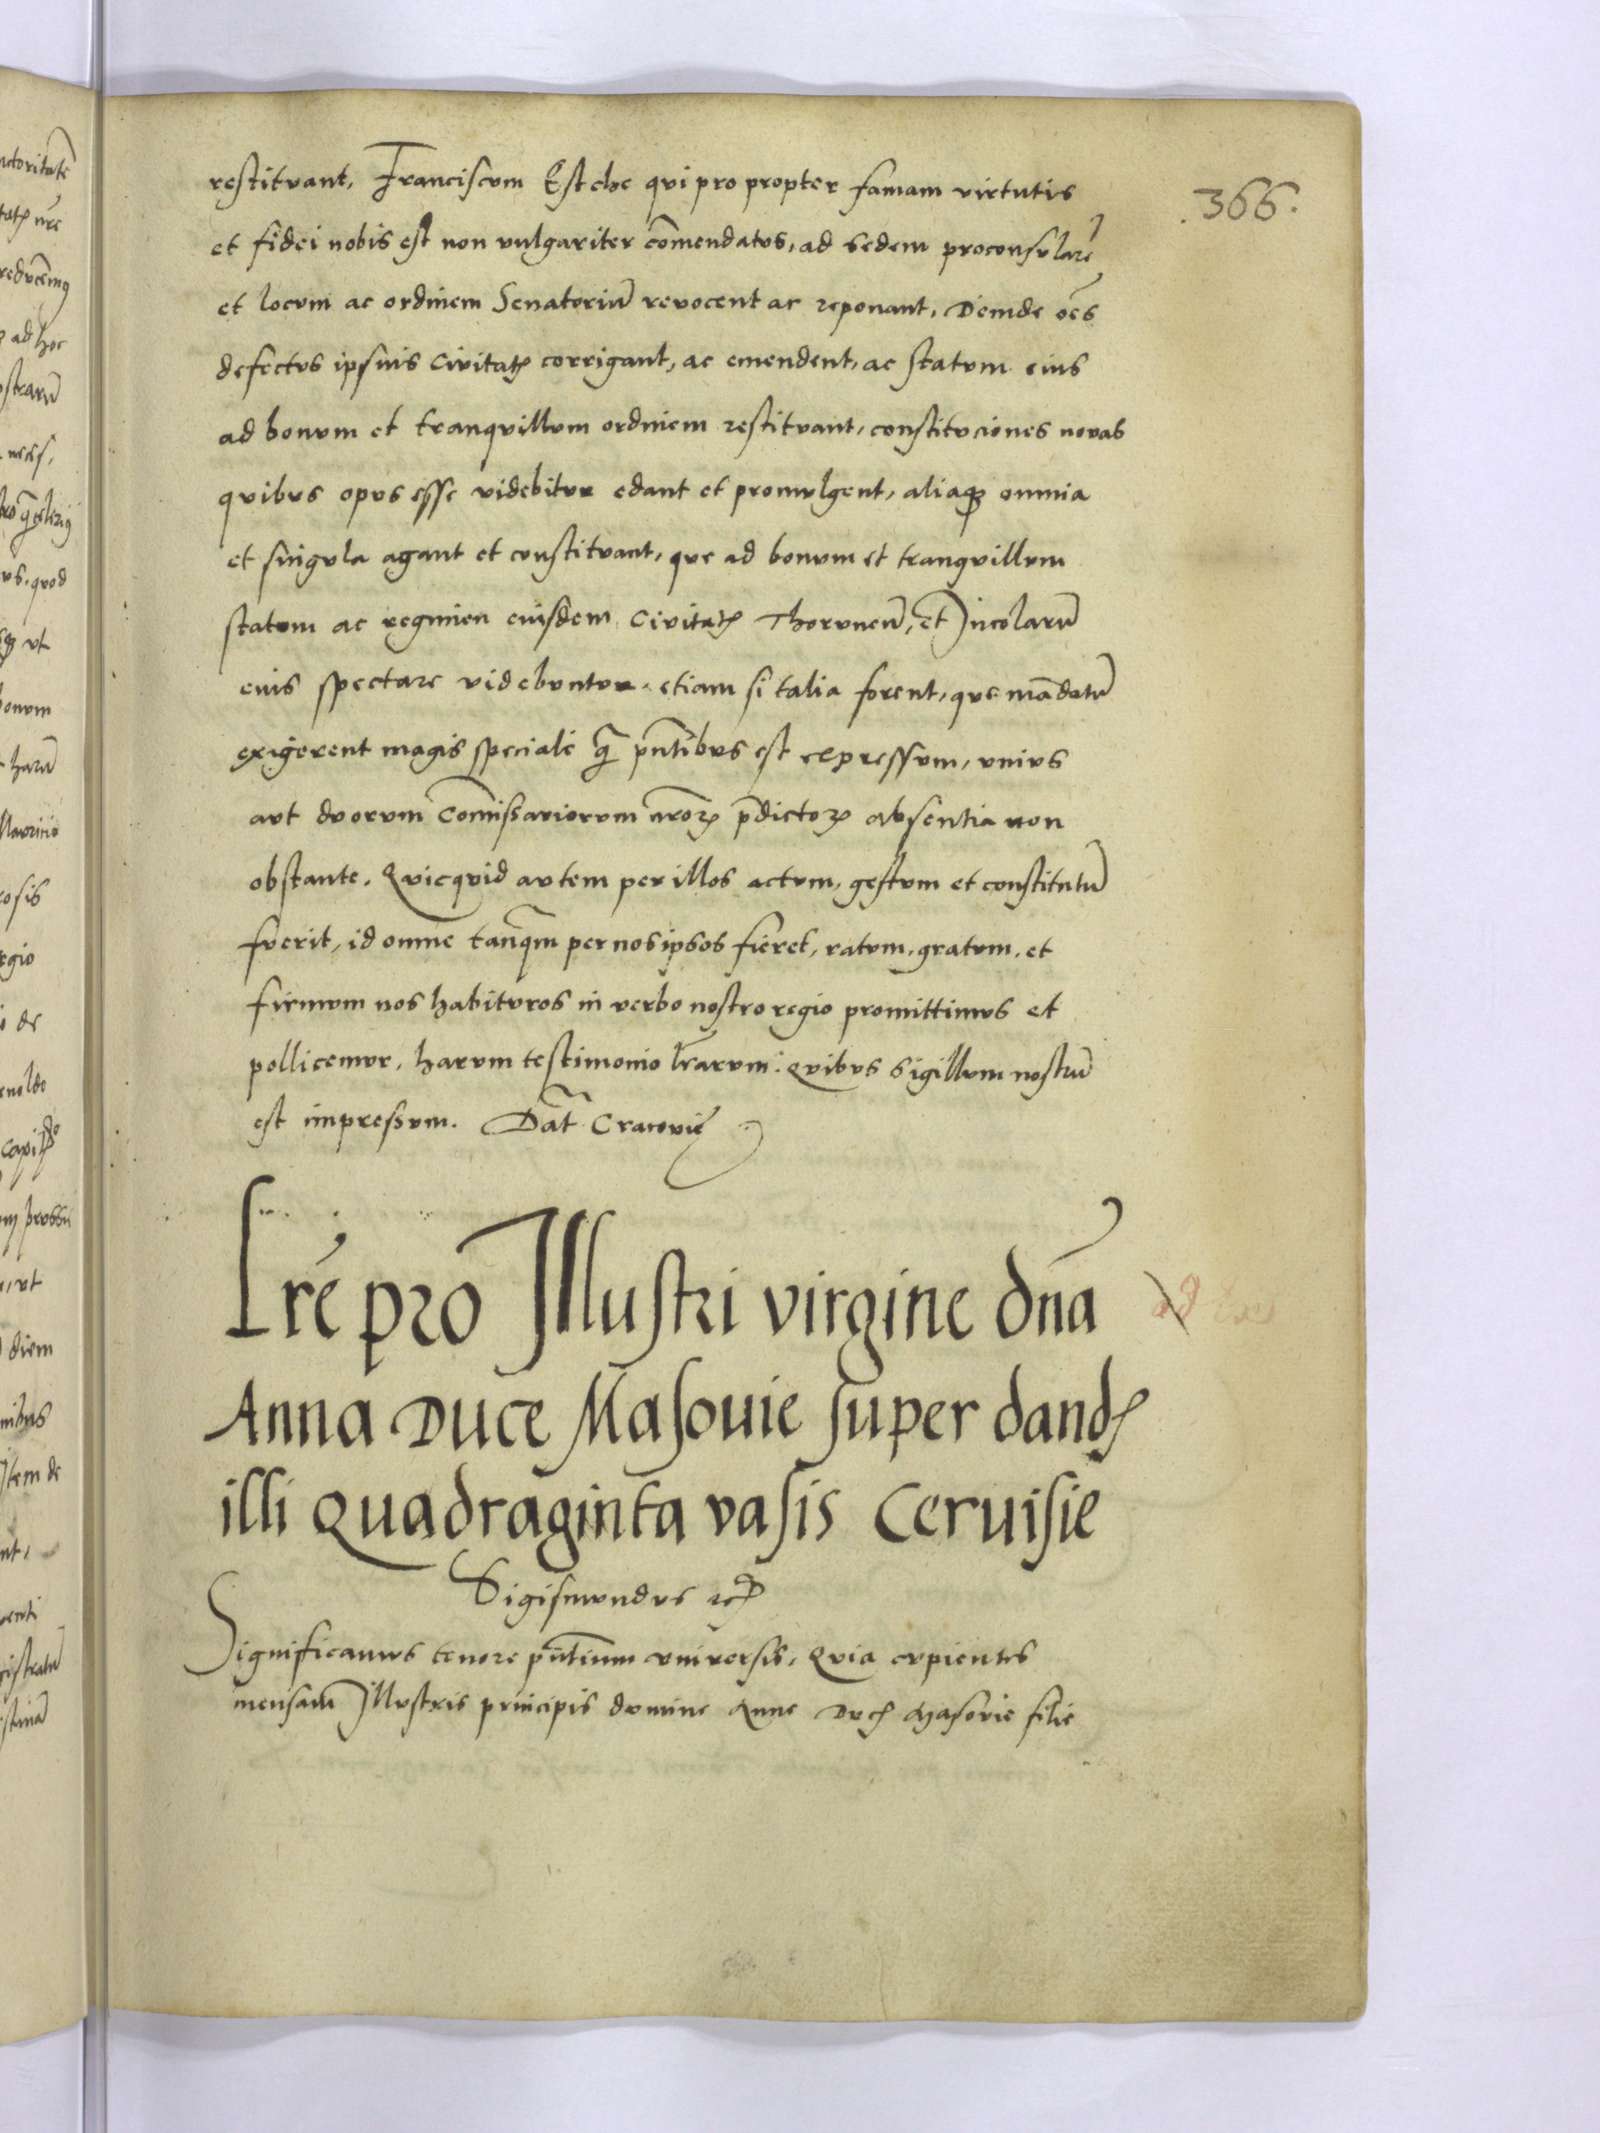 .366.
restituant, Franciscum Estche qui pro propter famam virtutis
et fidei nobis est non vulgariter cōmendatus, ad sedem proconsularē
et locum ac ordinem Senatoriū revocent ac reponant, Deinde oēs
defectus ipsius Civitatꝭ corrigant, ac emendent, ac statum eius
ad bonum et tranquillum ordinem restituant, constituciones novas
quibus opus esse videbitur edant et promulgent, aliaqꝫ omnia
et singula agant et constituant, que ad bonum et tranquillum
statum ac regimen eiusdem Civitatꝭ Thoruneñ, et Incolarū
eius spectare videbuntur, etiam si talia forent, que mādatū
exigerent magis speciale q̄ pn̄tibus est expressum, unius
aut duorum Com̄issariorum nr̄oꝝ p̄dictoꝝ absentia non
obstante. Quicquid autem per illos actum, gestum et constitutū
fuerit, id omne tanq̄m per nos ipsos fieret, ratum, gratum, et
firmum nos habituros in verbo nostro regio promittimus et
pollicemur, harum testimonio lr̄arum: quibus sigillum nostrū
est impressum. Dat̄ Cracovie
Lrē pro Illustri virgine dn̄a
Anna Duce Masouie super dandꝭ
illi Quadraginta vasis Ceruisie
Sigismundus ꝛc̄
Significamus tenore pn̄tium universis, Quia cupientes
mensam Illustris principis domine Anne Ducꝭ Masovie filie